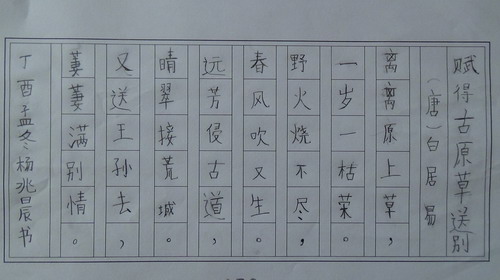 赋得古原草送别
（唐）白居易
离离原上草，
一岁一枯荣。
野火烧不尽，
春风吹又生。
远芳侵古道，
晴翠接荒城。
又送王孙去，
萋萋满别情。
丁酉孟冬杨兆晨书